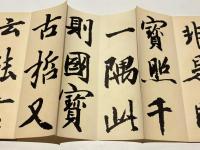 非是
寶照千
一隅此
則國寶
古哲又
云